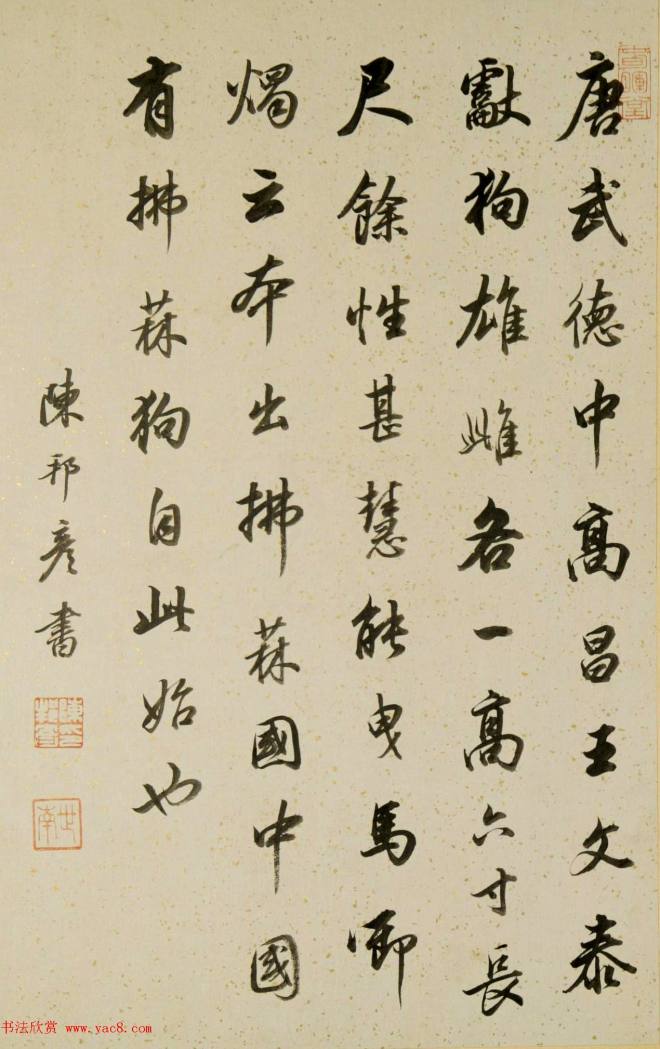 唐武德中高昌王文泰
獻狗雄雌各一高六寸長
尺餘性甚慧能曳馬啣
燭云本出拂菻國中國
有拂菻狗自此始也
陳邦彥書
陳邦彥
世南
书法欣赏 www.yac8.com